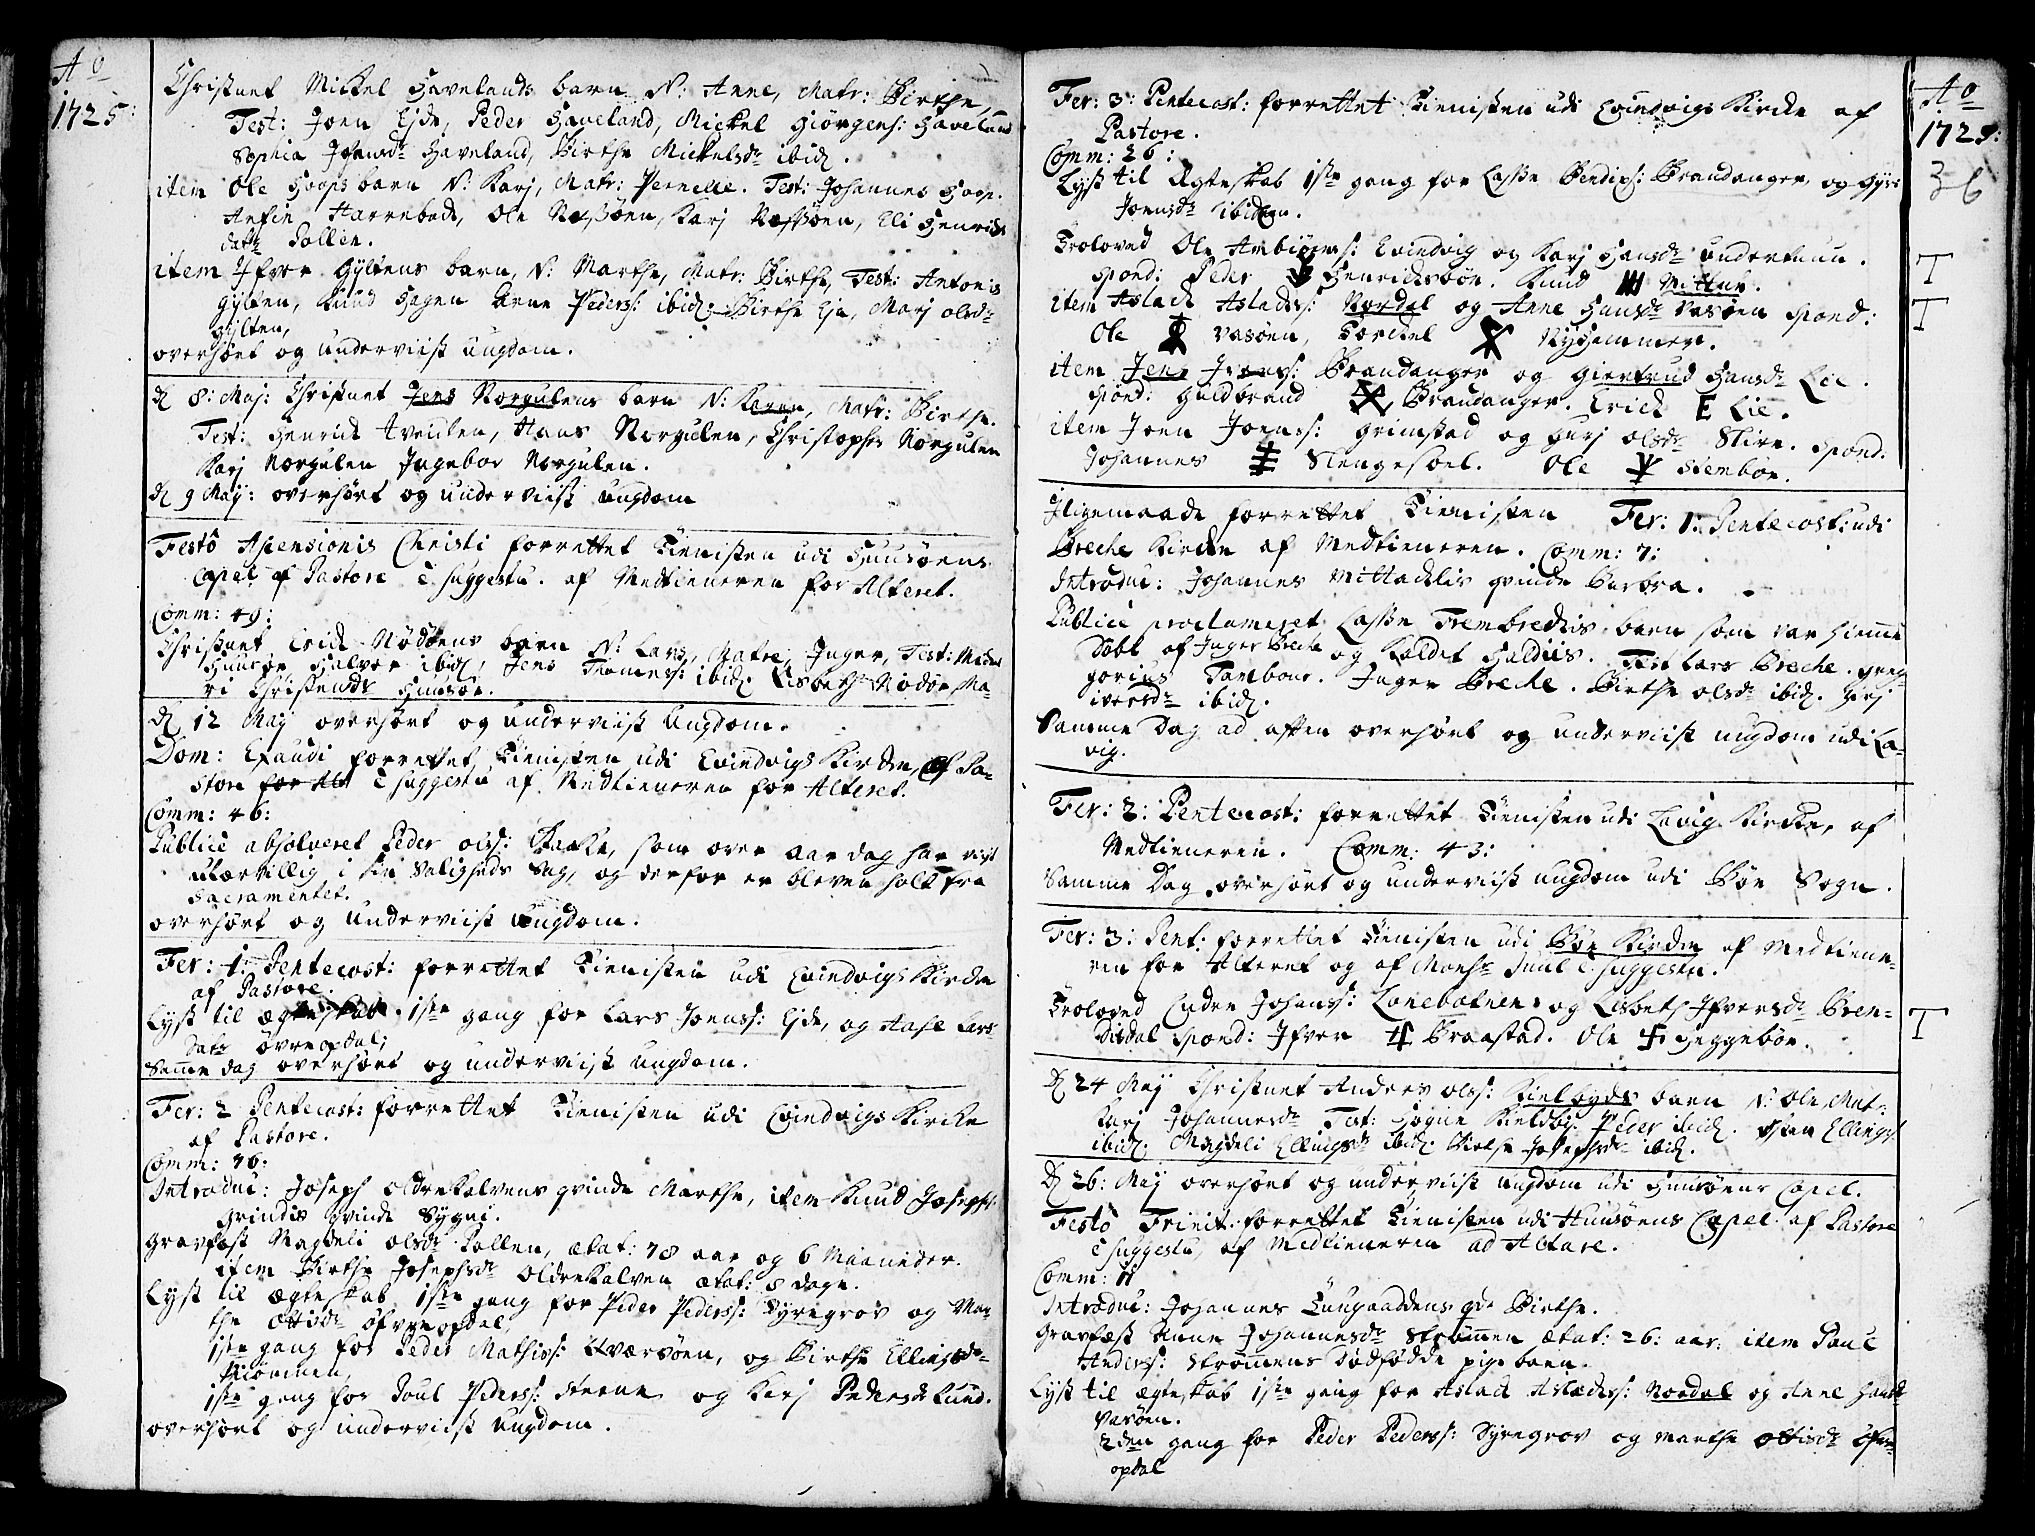 Ao
1725:
Christnet Mickel Havelands barn N: Anne, Matr: Birthe,
Test: Joen Eide, Peder Haveland, Mickel Giörgens: Haveland
Sophia Johansdr Haveland, Birthe Mickelsdr ibid.
item Ole Hoops barn N: Karj, Matr: Pernelle. Test: Johannes Hoop.
Anfin Harrebade, Ole Næssöen, Karj Næssöen, Eli Henrichs
datr Pollen.
item Ifver Gyltens barn, N: Marthe, Matr: Birthe, Test: Antonis
gylten, Knud Hagen Arne Peders: ibid: Birthe Eje, Marj olsdr
gylten,
overhört og underviist ungdom.
d 8: Maj: Christnet Jens Norgulens barn N: Karen, Matr: Birthe.
Test: Henrich Aveulen, Hans Norgulen, Christopher Norgulen
Karj Norgulen Ingebor Norgulen.
d 9 Maij: overhört og underviist ungdom
Festo Ascensionis Christi forrettet Tienisten udi Huusöens
Capel af Pastore è suggestu. af Medtieneren for Alteret.
Comm: 49:
Christnet Erich Nödöens barn N: Lars, Matre, Inger, Test: Michel
Huusöe Halvor ibid, Jens Thomes: ibid: Lisbeth Nödöe, Ma-
ri Christensdr Huusöe.
d 12 Maij overhört og underviist Ungdom.
Dom: Exaudi forrettet Tienisten udi Evindvigs Kircke, af Pa-
store for Alt è suggestu af Medtieneren for Alteret.
Comm: 46:
Publice absolveret Peder ols: Staeke, som over aar dag har viist
sig i sin Saligheds Sag, og derfor er bleven holt fra
Sacramentet.
overhört og underviist Ungdom.
Fer: 1: Pentecost: forrettet Tienisten udi Evindvigs Kircke
af Pastore.
Lyst til ægteskab 1ste gang for Lars Joenss: Eide, og Aase Lars
datr övreopdal,
Samme dag overhört og underviist ungdom.
Fer: 2 Pentecost: forrettet Tienisten udi Evindvigs Kircke
af Pastore.
Comm: 76:
Introduc: Joseph Oldrekalvens qvinde Marthe, item Knud Josephs:
Grindis qvinde Sygni.
Gravfæst Magdeli olsdr Pollen, ætat: 78 aar og 6 Maaneder.
item Birthe Josephsdr Oldrekalven ætat: 8 dage.
Lyst til ægteskab 1ste gang for Peder Peders: Syregrov og Mar-
the Ottisdr öfvreopdal,
1ste gang for Peder Mathiss: Tværöen, og Birthe Ellingsdr
Kiömmen,
1ste gang for Poul Peders: Steene og Karj Pedersdr Lund.
overhört og underviist Ungdom.
Fer: 3: Pentecost: forrettet Tienisten udi Evindvigs Kircke af
Pastore.
Comm: 26:
Lyst til Ægteskab 1ste gang for Lasse Bendixs: Brandanger og Gyri
Joensdr ibidem.
Troloved Ole Ambiörns: Evindvig og Karj Hansdr undertuun.
spond: Peder Henrichsböe. Knud Mittun.
item Aslach Aslachs: Nordal og Anne Hansdr Vasöen spond:
Ole Vasöen, Torckel Nyhammer.
item Jens Jens: Brandanger og Giertrud Hansdr Lie.
spond: Guldbrand Brandanger. Erich E Lie.
item Joen Joenss: Grimstad og Karj olsdr Skire. spond.
Johannes Slengesoel. Ole Stemböe.
Iligemaade forrettet Tienisten Fer: 1: Pentecost: udi
Breche Kircke af Medtieneren. Comm: 7:
Introduc: Johannes Mittachlis qvinde Barbra.
Publice proclameret Lasse Trembrechis barn som var hiemme
Döbt af Inger Breche og kaldet Haldis. Test Lars Breche. greg-
gorius Tambour. Inger Breche. Birthe olsdr ibid. Karj
iversdr ibid.
Samme Dag ad aften overhört og underviist ungdom udi La-
vig.
Fer: 2: Pentecost: forrettet Tienisten udi Lavig Kircke, af
Medtieneren. Comm: 43:
Samme Dag overhört og underviist ungdom udi Böe Sogn.
Fer: 3: Pent: forrettet Tienisten udi Böe Kircke af Medtiene-
ren for Alteret og af Monsr Juul è suggestu.
Troloved Enden Johans: Lonebotnen og Lisbeth Ifversdr Bren-
disdal spond: Ifver Braastad. Ole Heggeböe.
d 24 Maij Christnet Anders ols: Kielbyds barn N: Ole Mat:
Karj Johannesdr Test: Hogne Kieldby: Peder ibid. Sten Ellings:
ibid. Magdeli Ellingsdr ibid: Birthe Josephsdr ibid.
d 26: Maij overhört og underviist ungdom udi Huusöens Capel.
Festo Trinit. forrettet Tienisten udi Huusöens Capel af Pastore
è suggestu, af Medtieneren ad Altare.
Comm: 11
Introduc: Johannes Tungaaddens qde Birthe.
Gravfæst Anne Johannesdr Strömmen ætat: 26: aar, item Poul
Anders: Strömmens Dödfödde pige barn.
Lyst til ægteskab 1ste gang for Aslach Aslachs: Nordal og Anne Hansdr
Vasöen.
2den gang for Peder Peders: Syregrov og Marthe Ottisdr öfvre-
opdal
Ao
1725:
36
T
T
T